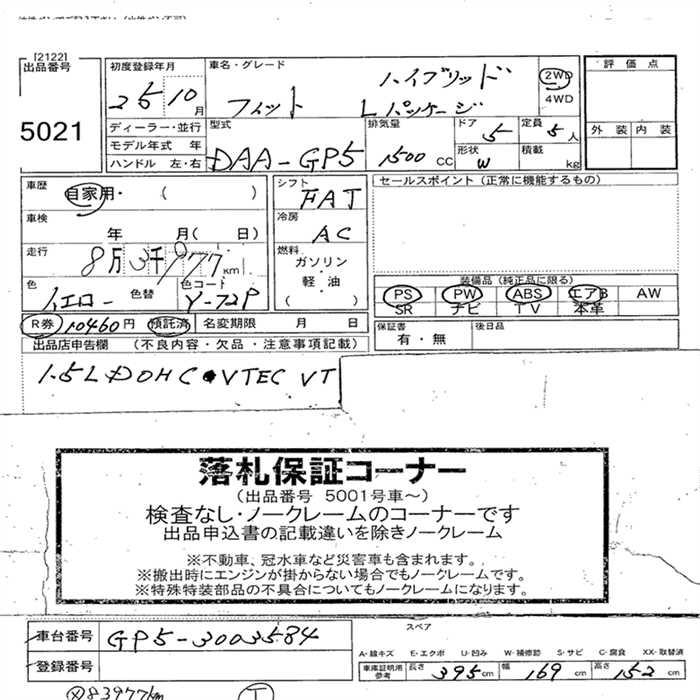 [2122]
出品番号
5021
初度登録年月
25 10 月
車名・グレード
ハイブリッド
フィット Lパッケージ
2WD
4WD
評価点
外装 内装
ディーラー・並行
モデル年式 年
ハンドル 左・右
型式
DAA-GP5
排気量
1500 CC
ドア
5
定員
5 人
形状
W
積載
kg
車歴
自家用・ ( )
車検
年 月( 日)
走行
8万3千977km
色
イエロー
色替
色コード
Y-72P
シフト
FAT
冷房
AC
燃料
ガソリン
・
軽・油
( )
セールスポイント(正常に機能するもの)
装備品(純正品に限る)
PS PW ABS エアB AW
SR ナビ TV 本革
保証書
有・無
後日品
R券 10460円 預託済 名変期限 月 日
出品店申告欄 (不良内容・欠品・注意事項記載)
1.5L DOHC・VTEC VT
落札保証コーナー
(出品番号 5001号車~)
検査なし・ノークレームのコーナーです
出品申込書の記載違いを除きノークレーム
※不動車、冠水車など災害車も含まれます。
※搬出時にエンジンが掛からない場合でもノークレームです。
※特殊特装部品の不具合についてもノークレームになります。
車台番号 GP5-3003584
登録番号
スペア
A-線キズ E-エクボ U-凹み W-補修跡 S-サビ C-腐食 XX-取替済
車庫証明用参考 長さ 395cm 幅 169cm 高さ 152cm
83977km